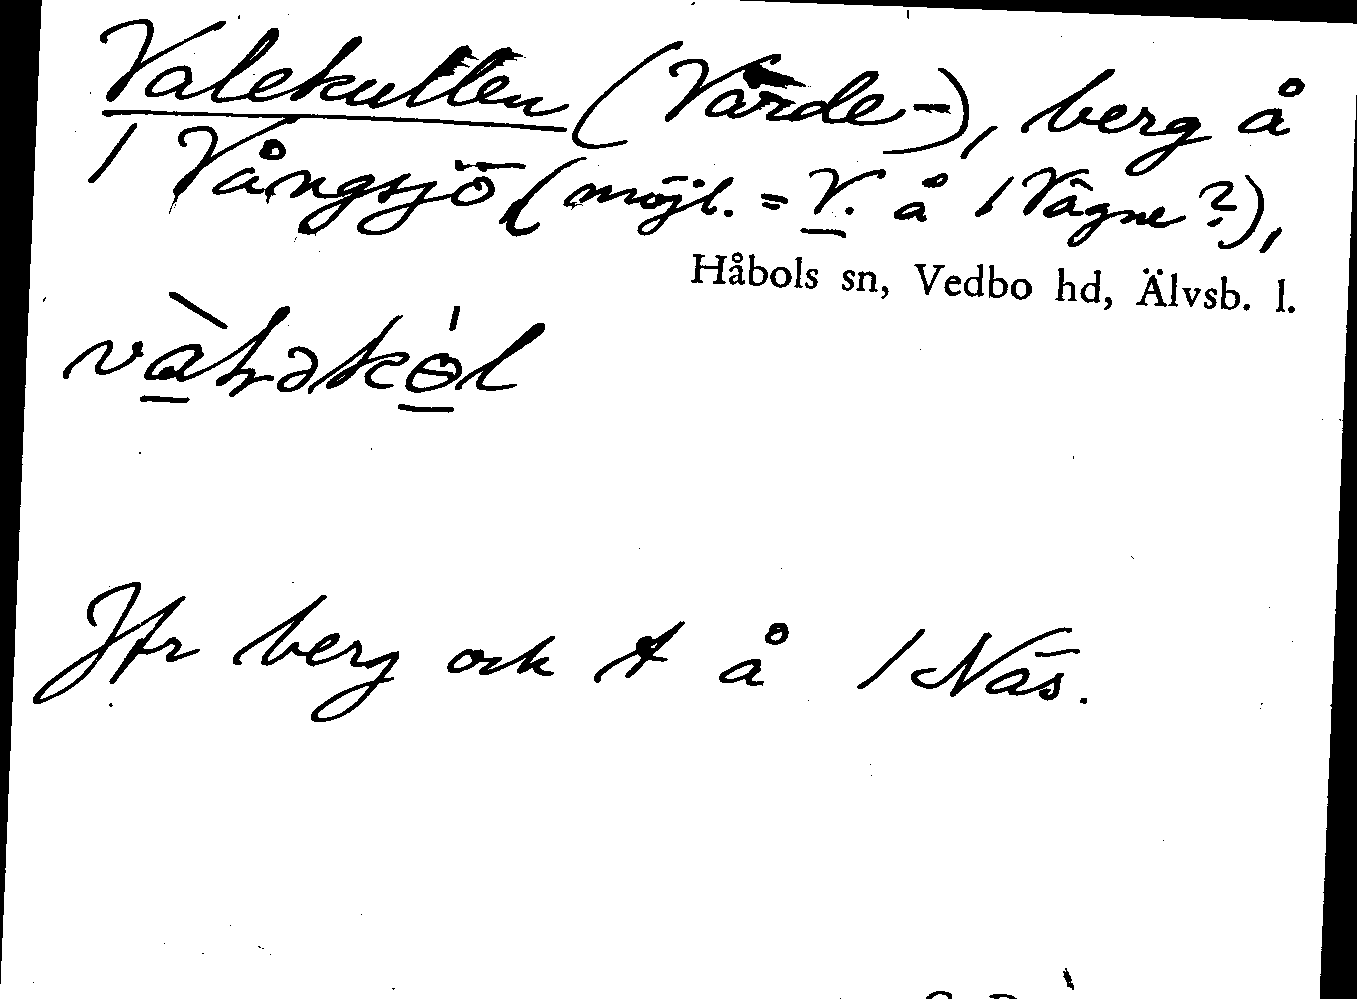 Valekullen (Vårde-), berg å
/ Vångsjö (möjl. = V. å / Vägne?),
Håbols sn, Vedbo hd, Älvsb. l.
Jfr berg och t å / Näs.